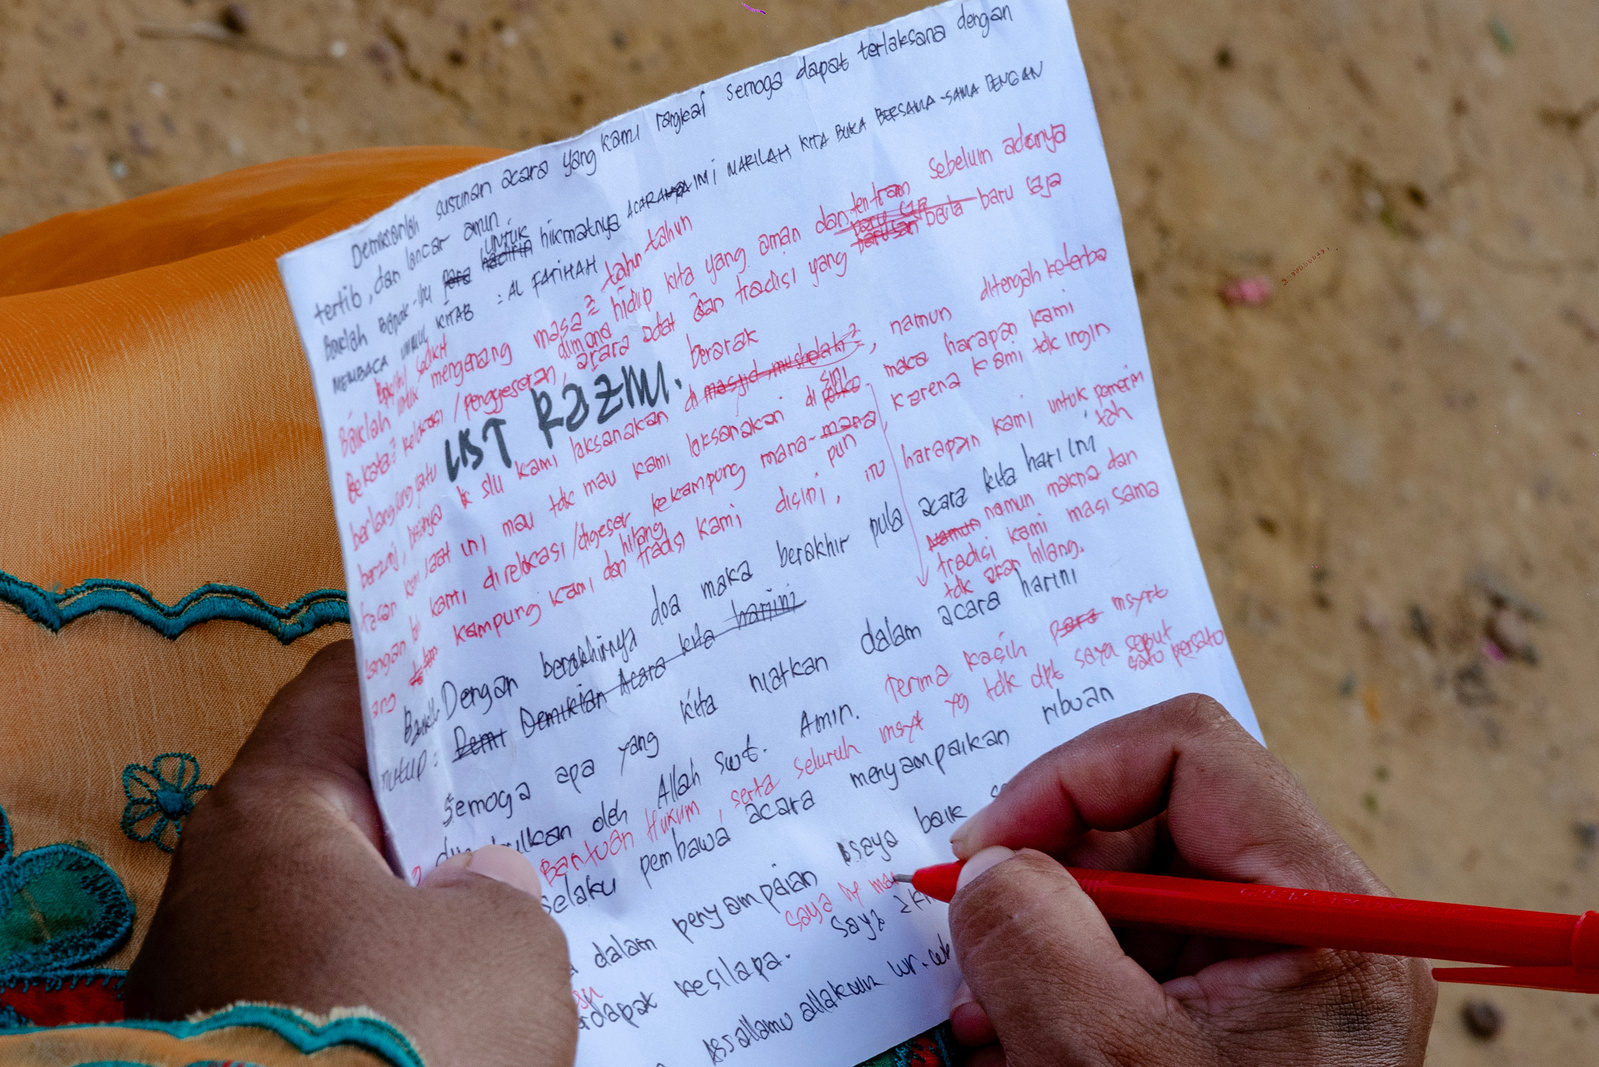 Demikianlah susunan acara yang kami rangkai semoga dapat terlaksana dengan
tertib, dan lancar amin
UNTUK
Baiklah Bapak-Ibu para hadirin hikmatnya ACARA INI MARILAH KITA BUKA BERSAMA-SAMA DENGAN
MEMBACA UMMUL KITAB : AL FATIHAH
sedikit
Baiklah untuk mengenang masa² tahun tahun
dimana hidup kita yang aman dan tentram sebelum adanya
Bekata² relokasi / penggeseran, acara adat dan tradisi yang baru saja
berlangsung yaitu
LIST RAZIM.
berarak
berzanji, biasanya slu kami laksanakan di masjid, mushalah², namun ditengah keterba
kami saat ini mau tdk mau kami laksanakan di posko sini maka harapan kami
jangan kami di relokasi / digeser kekampung mana-mana, karena kami tdk ingin
kampung kami dan tradisi kami hilang
disini, pun itu harapan kami untuk pemerin
tah
Dengan berakhirnya doa maka berakhir pula acara kita hari ini
namun makna dan
tradisi kami masi sama
tdk akan hilang.
nutup : Demi Demikian Acara kita hariini
Semoga apa yang kita niatkan dalam acara hariini
oleh Allah swt. Amin. Terima kasih para msyrt
Bantuan Hukum, serta seluruh msyt yg tdk dpt saya sebut
satu persatu
selaku pembawa acara menyampaikan ribuan
dalam penyampaian saya baik
saya
dapat kesilapa. saya
Assallamu allaikum wr. wb